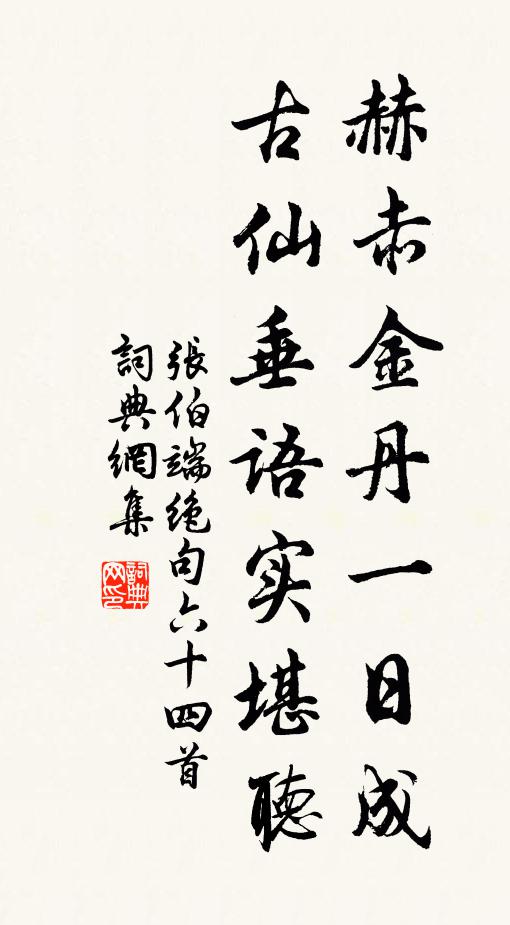 赫赤金丹一日成
古仙垂语实堪聽
張伯端绝句六十四首
詞典網集
詞典
网印